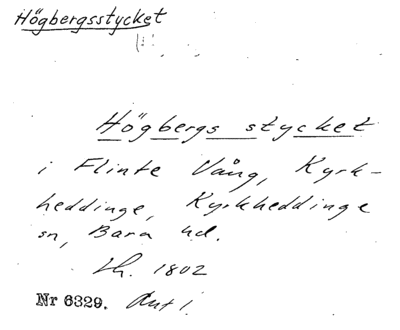 Högbergsstycket
Högbergs stycket
i Flinte Vång, Kyrk-
heddinge, Kyrkheddinge
sn, Bara hd.
Lh. 1802
Nr 6329. Akt 1.